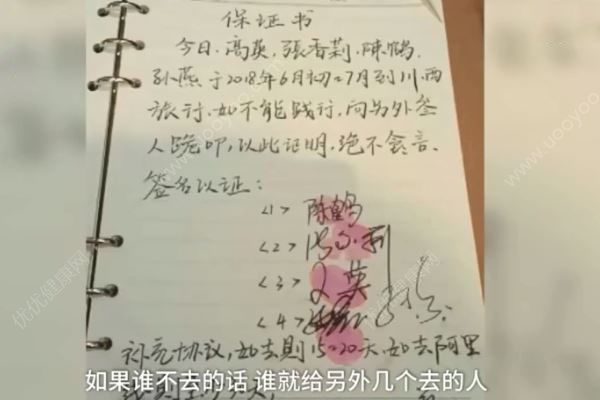 保证书
今日、高英,張香莉,陳鹤,
孙燕于2018年6月初=7月到川西
旅行,如不能践行,向另外叁
人跪叩,以此证明,绝不食言、
签名以证:
<1> 陈鹤
<2>
<3> 英
<4>
补充协议,如去則15-20天,如去阿里
如果谁不去的话 谁就给另外几个去的人
优优健康网
www.uoyoo